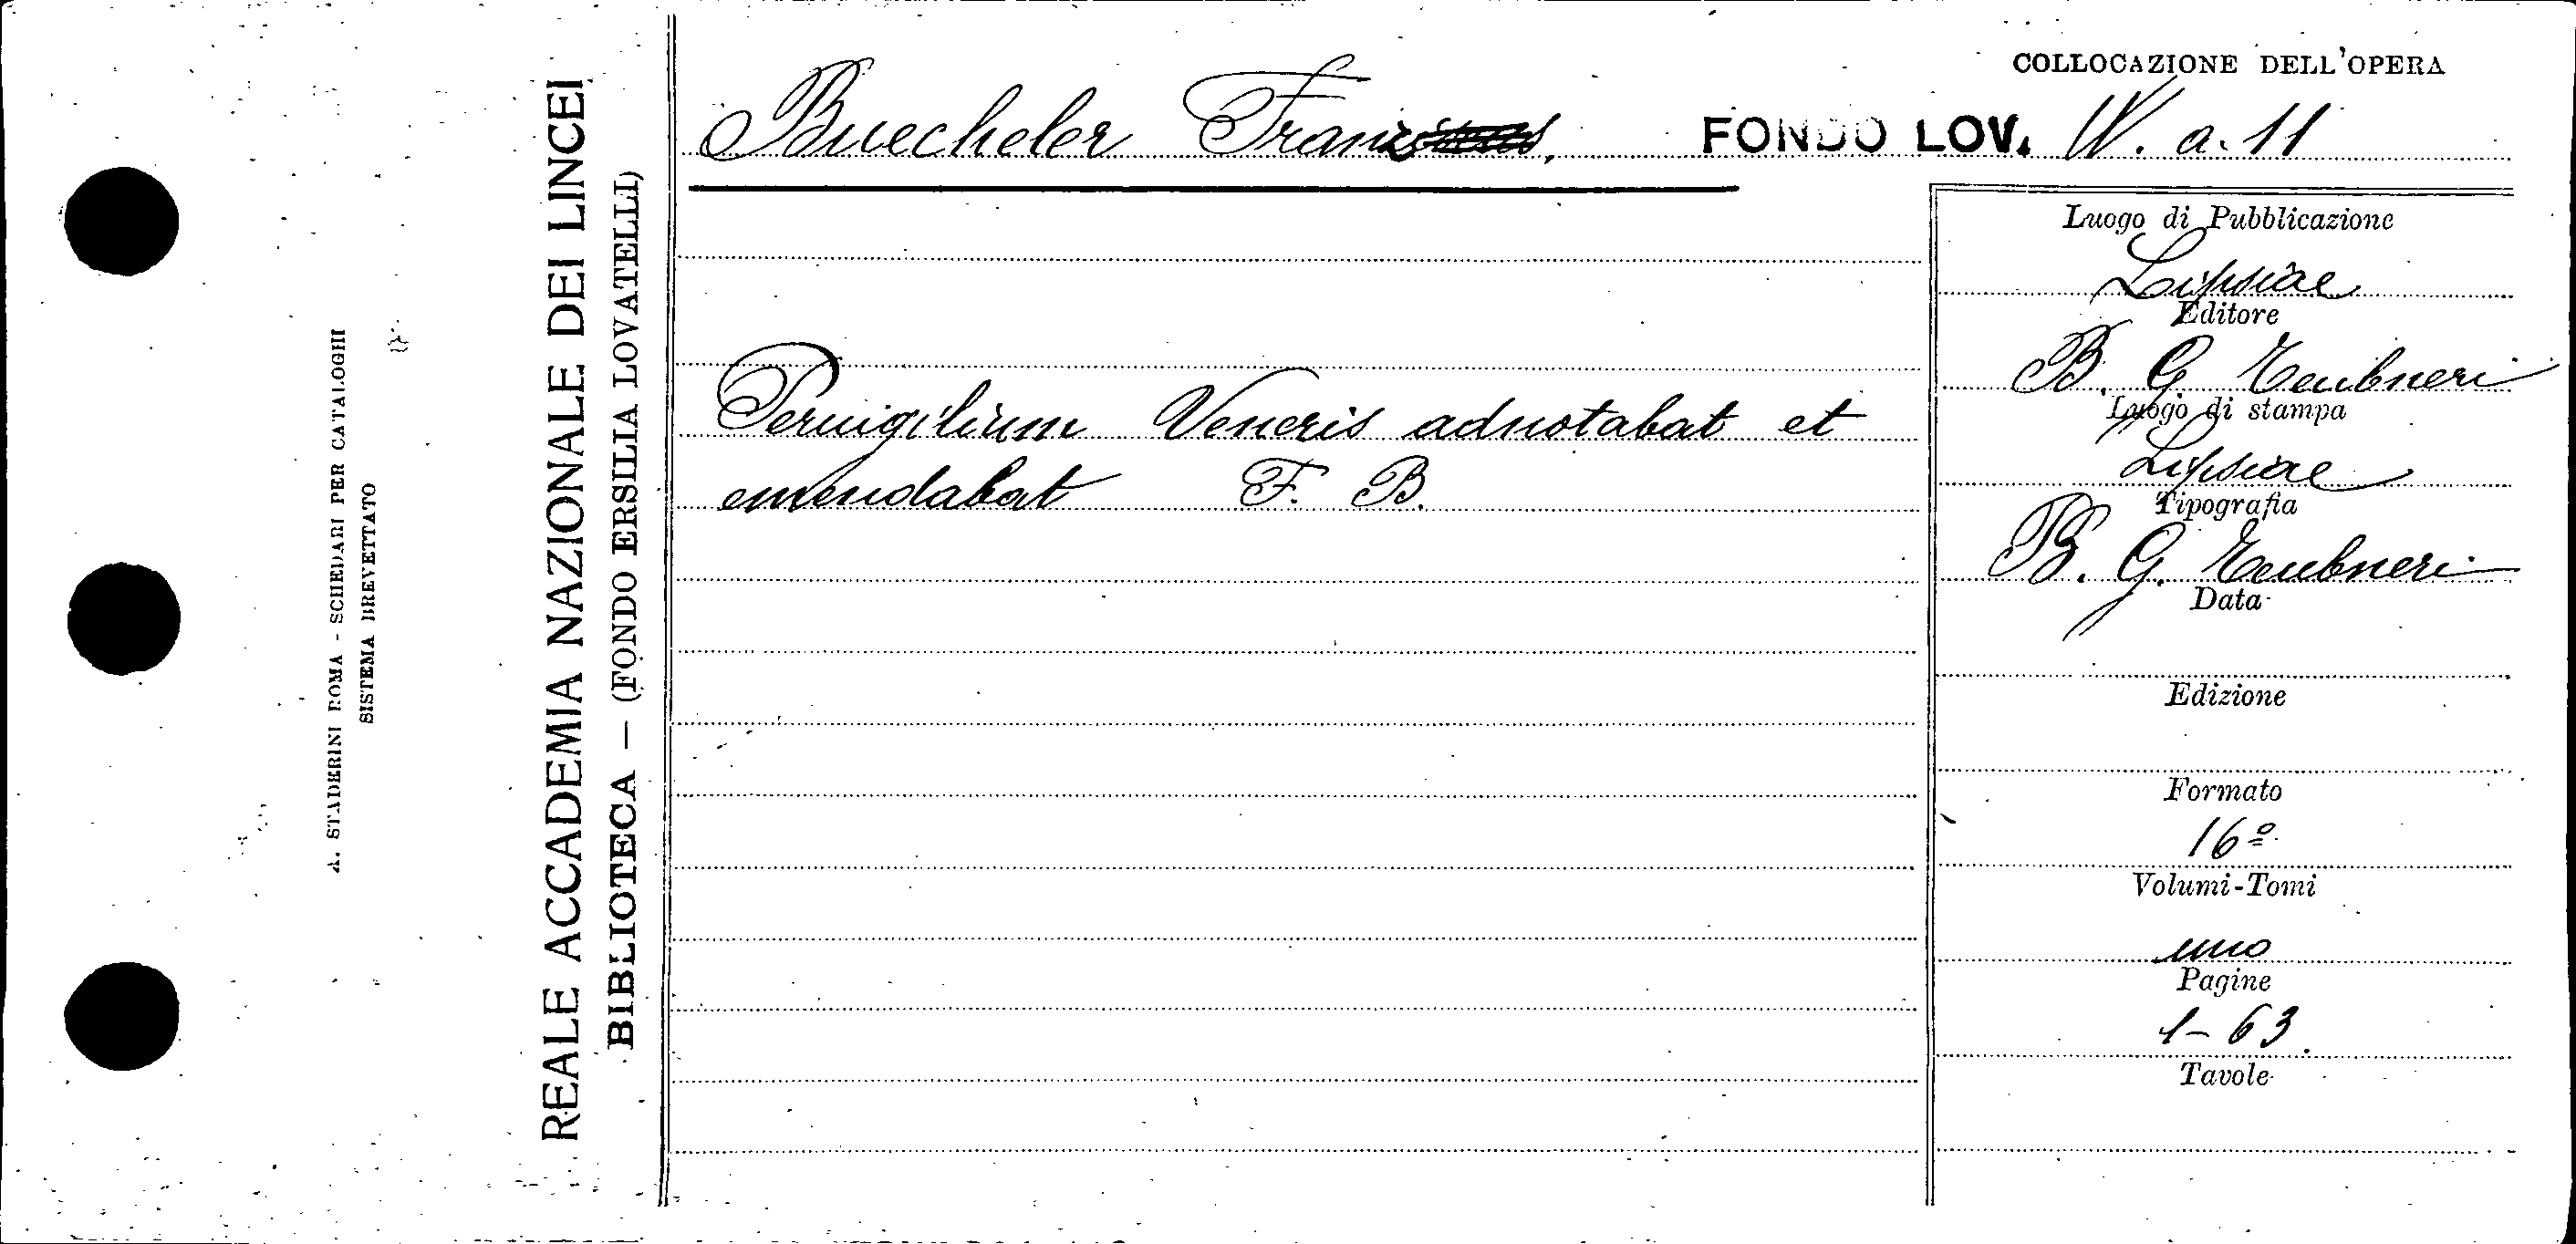 COLLOCAZIONE DELL'OPERA
Buecheler Franz
FONDO LOV. IV. a. 11
Pervigilium Veneris adnotabat et
emendabat F. B.
Luogo di Pubblicazione
Lipsiae
Editore
B. G. Teubneri
Luogo di stampa
Lipsiae
Tipografia
B. G. Teubneri
Data
Edizione
Formato
16º
Volumi-Tomi
uno
Pagine
1-63
Tavole
REALE ACCADEMIA NAZIONALE DEI LINCEI
BIBLIOTECA — (FONDO ERSILIA LOVATELLI)
A. STADERINI ROMA - SCHEDARI PER CATALOGHI
SISTEMA BREVETTATO